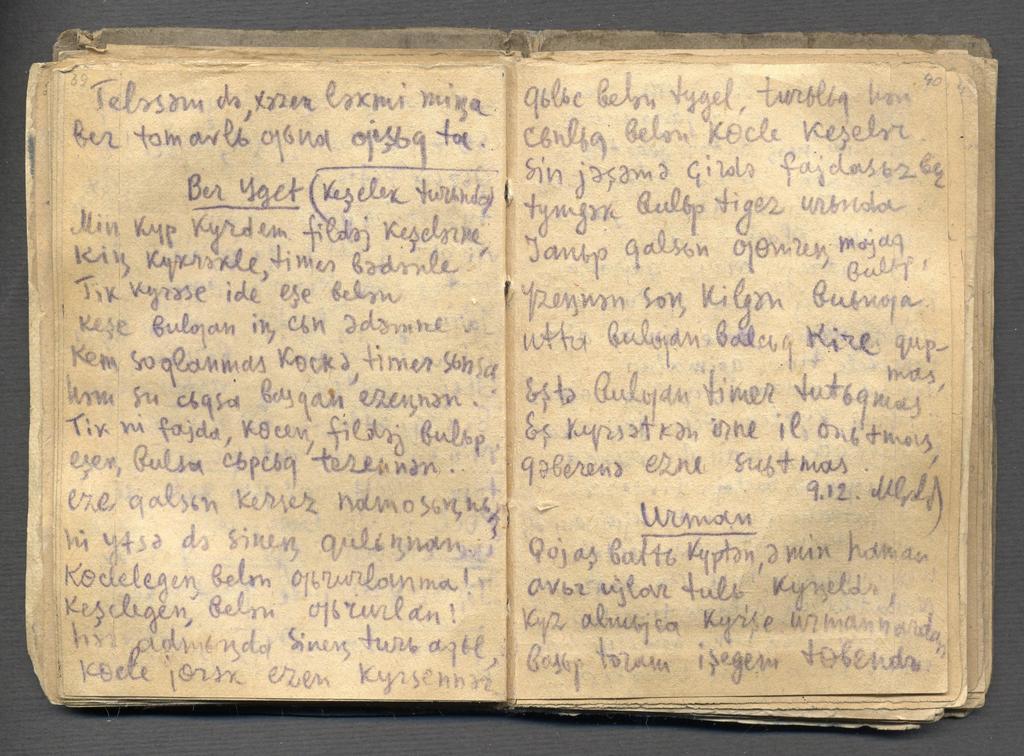 89
Telәsәm dә, xәzer lәkmi miŋa
ber tamarlь qьna ojьşьq ta.
Ber Yget (keşelek turьnda)
Min kyp kyrdem fildәj keşelәrne,
Kiŋ kykrәkle, timer bәdәnle
Tik kyrәse ide eşe belәn
keşe bulƣan iŋ cьn әdәmne
Kem soqlanmas kөckә, timer sьnsa
hәm su cьqsa basqan ezeŋnәn.
Tik ni fajda, kөceŋ, fildәj bulьp,
eşeŋ, bulsa cьpcьq tezennәn.
eze qalsьn kersez namosьŋnьŋ
ni ytsә dә sineŋ qulьŋnan.
Kөclelegeŋ belәn ƣьrurlanma!
Keşelegeŋ belәn ƣьrurlan!
hәr adьmьŋda sineŋ turь aqьl,
kөcle jөrәk ezen kyrsennәr
90
qьlьc belәn tygel, turьlьq hәm
cьnlьq belәn kөcle keşelәr.
Sin jәşәmә çirdә fajdasьz ber
tymgәk bulьp tigez urьnda
Janьp qalsьn ƣөmreŋ, majaq
bulьp,
yzeŋnәn soŋ kilgәn buьnƣa.
utta bulƣan balcьq kire qup-
mas,
Eştә bulƣan timer tutьqmas
Eş kyrsәtkәn irne il onьtmas,
qәberenә ezne suьtmas.
9.12.
Urman
Qojaş battь kyptәn, әmin haman
avьr ujlar tulь kyŋeldә,
kyz almьjca kyrşe urmannardan
basьp toram işegem tөbendә